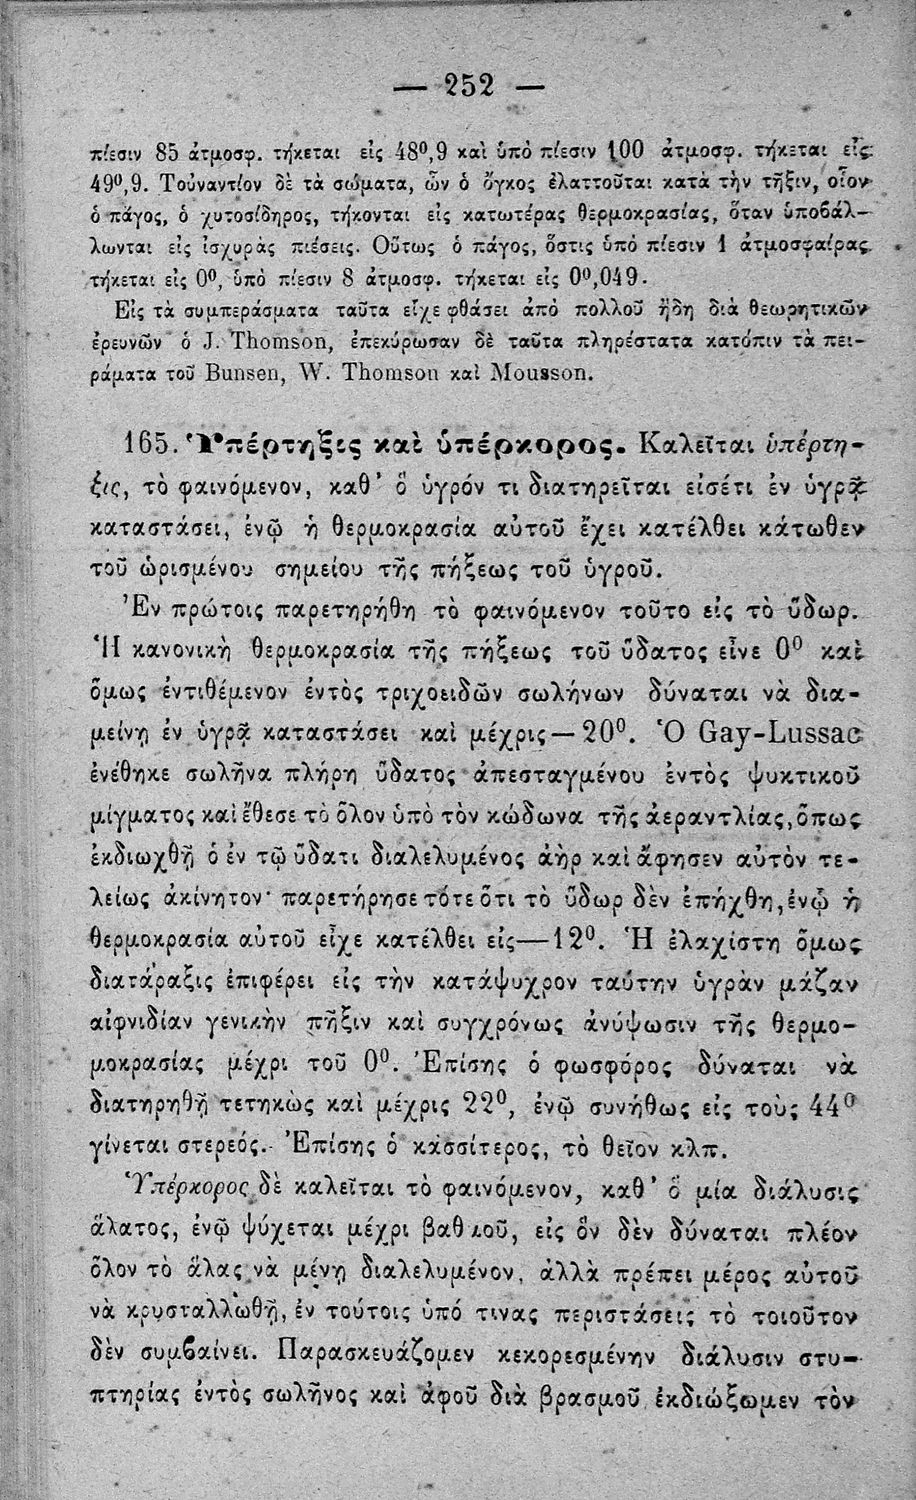 — 252 —
πίεσιν 85 ἀτμοσφ. τήκεται εἰς 48⁰,9 καὶ ὑπὸ πίεσιν 100 ἀτμοσφ. τήκεται εἰς
49⁰,9. Τοὐναντίον δὲ τὰ σώματα, ὧν ὁ ὄγκος ἐλαττοῦται κατὰ τὴν τῆξιν, οἷον
ὁ πάγος, ὁ χυτοσίδηρος, τήκονται εἰς κατωτέρας θερμοκρασίας, ὅταν ὑποβάλ-
λωνται εἰς ἰσχυρὰς πιέσεις. Οὕτως ὁ πάγος, ὅστις ὑπὸ πίεσιν 1 ἀτμοσφαίρας
τήκεται εἰς 0⁰, ὑπὸ πίεσιν 8 ἀτμοσφ. τήκεται εἰς 0⁰,049.
Εἰς τὰ συμπεράσματα ταῦτα εἶχε φθάσει ἀπὸ πολλοῦ ἤδη διὰ θεωρητικῶν
ἐρευνῶν ὁ J. Thomson, ἐπεκύρωσαν δὲ ταῦτα πληρέστατα κατόπιν τὰ πει-
ράματα τοῦ Bunsen, W. Thomson καὶ Mousson.
165. Ὑπέρτηξις καὶ ὑπέρκορος. Καλεῖται ὑπέρτη-
ξις, τὸ φαινόμενον, καθ' ὃ ὑγρόν τι διατηρεῖται εἰσέτι ἐν ὑγρᾷ
καταστάσει, ἐνῷ ἡ θερμοκρασία αὐτοῦ ἔχει κατέλθει κάτωθεν
τοῦ ὡρισμένου σημείου τῆς πήξεως τοῦ ὑγροῦ.
Ἐν πρώτοις παρετηρήθη τὸ φαινόμενον τοῦτο εἰς τὸ ὕδωρ.
Ἡ κανονικὴ θερμοκρασία τῆς πήξεως τοῦ ὕδατος εἶνε 0⁰ καὶ
ὅμως ἐντιθέμενον ἐντὸς τριχοειδῶν σωλήνων δύναται νὰ δια-
μείνῃ ἐν ὑγρᾷ καταστάσει καὶ μέχρις — 20⁰. Ὁ Gay-Lussac
ἐνέθηκε σωλῆνα πλήρη ὕδατος ἀπεσταγμένου ἐντὸς ψυκτικοῦ
μίγματος καὶ ἔθεσε τὸ ὅλον ὑπὸ τὸν κώδωνα τῆς ἀεραντλίας, ὅπως
ἐκδιωχθῇ ὁ ἐν τῷ ὕδατι διαλελυμένος ἀὴρ καὶ ἄφησεν αὐτὸν τε-
λείως ἀκίνητον· παρετήρησε τότε ὅτι τὸ ὕδωρ δὲν ἐπήχθη, ἐνῷ ἡ
θερμοκρασία αὐτοῦ εἶχε κατέλθει εἰς—12⁰. Ἡ ἐλαχίστη ὅμως
διατάραξις ἐπιφέρει εἰς τὴν κατάψυχρον ταύτην ὑγρὰν μάζαν
αἰφνιδίαν γενικὴν πῆξιν καὶ συγχρόνως ἀνύψωσιν τῆς θερμο-
μοκρασίας μέχρι τοῦ 0⁰. Ἐπίσης ὁ φωσφόρος δύναται νὰ
διατηρηθῇ τετηκὼς καὶ μέχρις 22⁰, ἐνῷ συνήθως εἰς τοὺς 44⁰
γίνεται στερεός. Ἐπίσης ὁ κασσίτερος, τὸ θεῖον κλπ.
Ὑπέρκορος δὲ καλεῖται τὸ φαινόμενον, καθ' ὃ μία διάλυσις
ἅλατος, ἐνῷ ψύχεται μέχρι βαθμοῦ, εἰς ὃν δὲν δύναται πλέον
ὅλον τὸ ἅλας νὰ μένῃ διαλελυμένον, ἀλλὰ πρέπει μέρος αὐτοῦ
νὰ κρυσταλλωθῇ, ἐν τούτοις ὑπό τινας περιστάσεις τὸ τοιοῦτον
δὲν συμβαίνει. Παρασκευάζομεν κεκορεσμένην διάλυσιν στυ-
πτηρίας ἐντὸς σωλῆνος καὶ ἀφοῦ διὰ βρασμοῦ ἐκδιώξωμεν τὸν